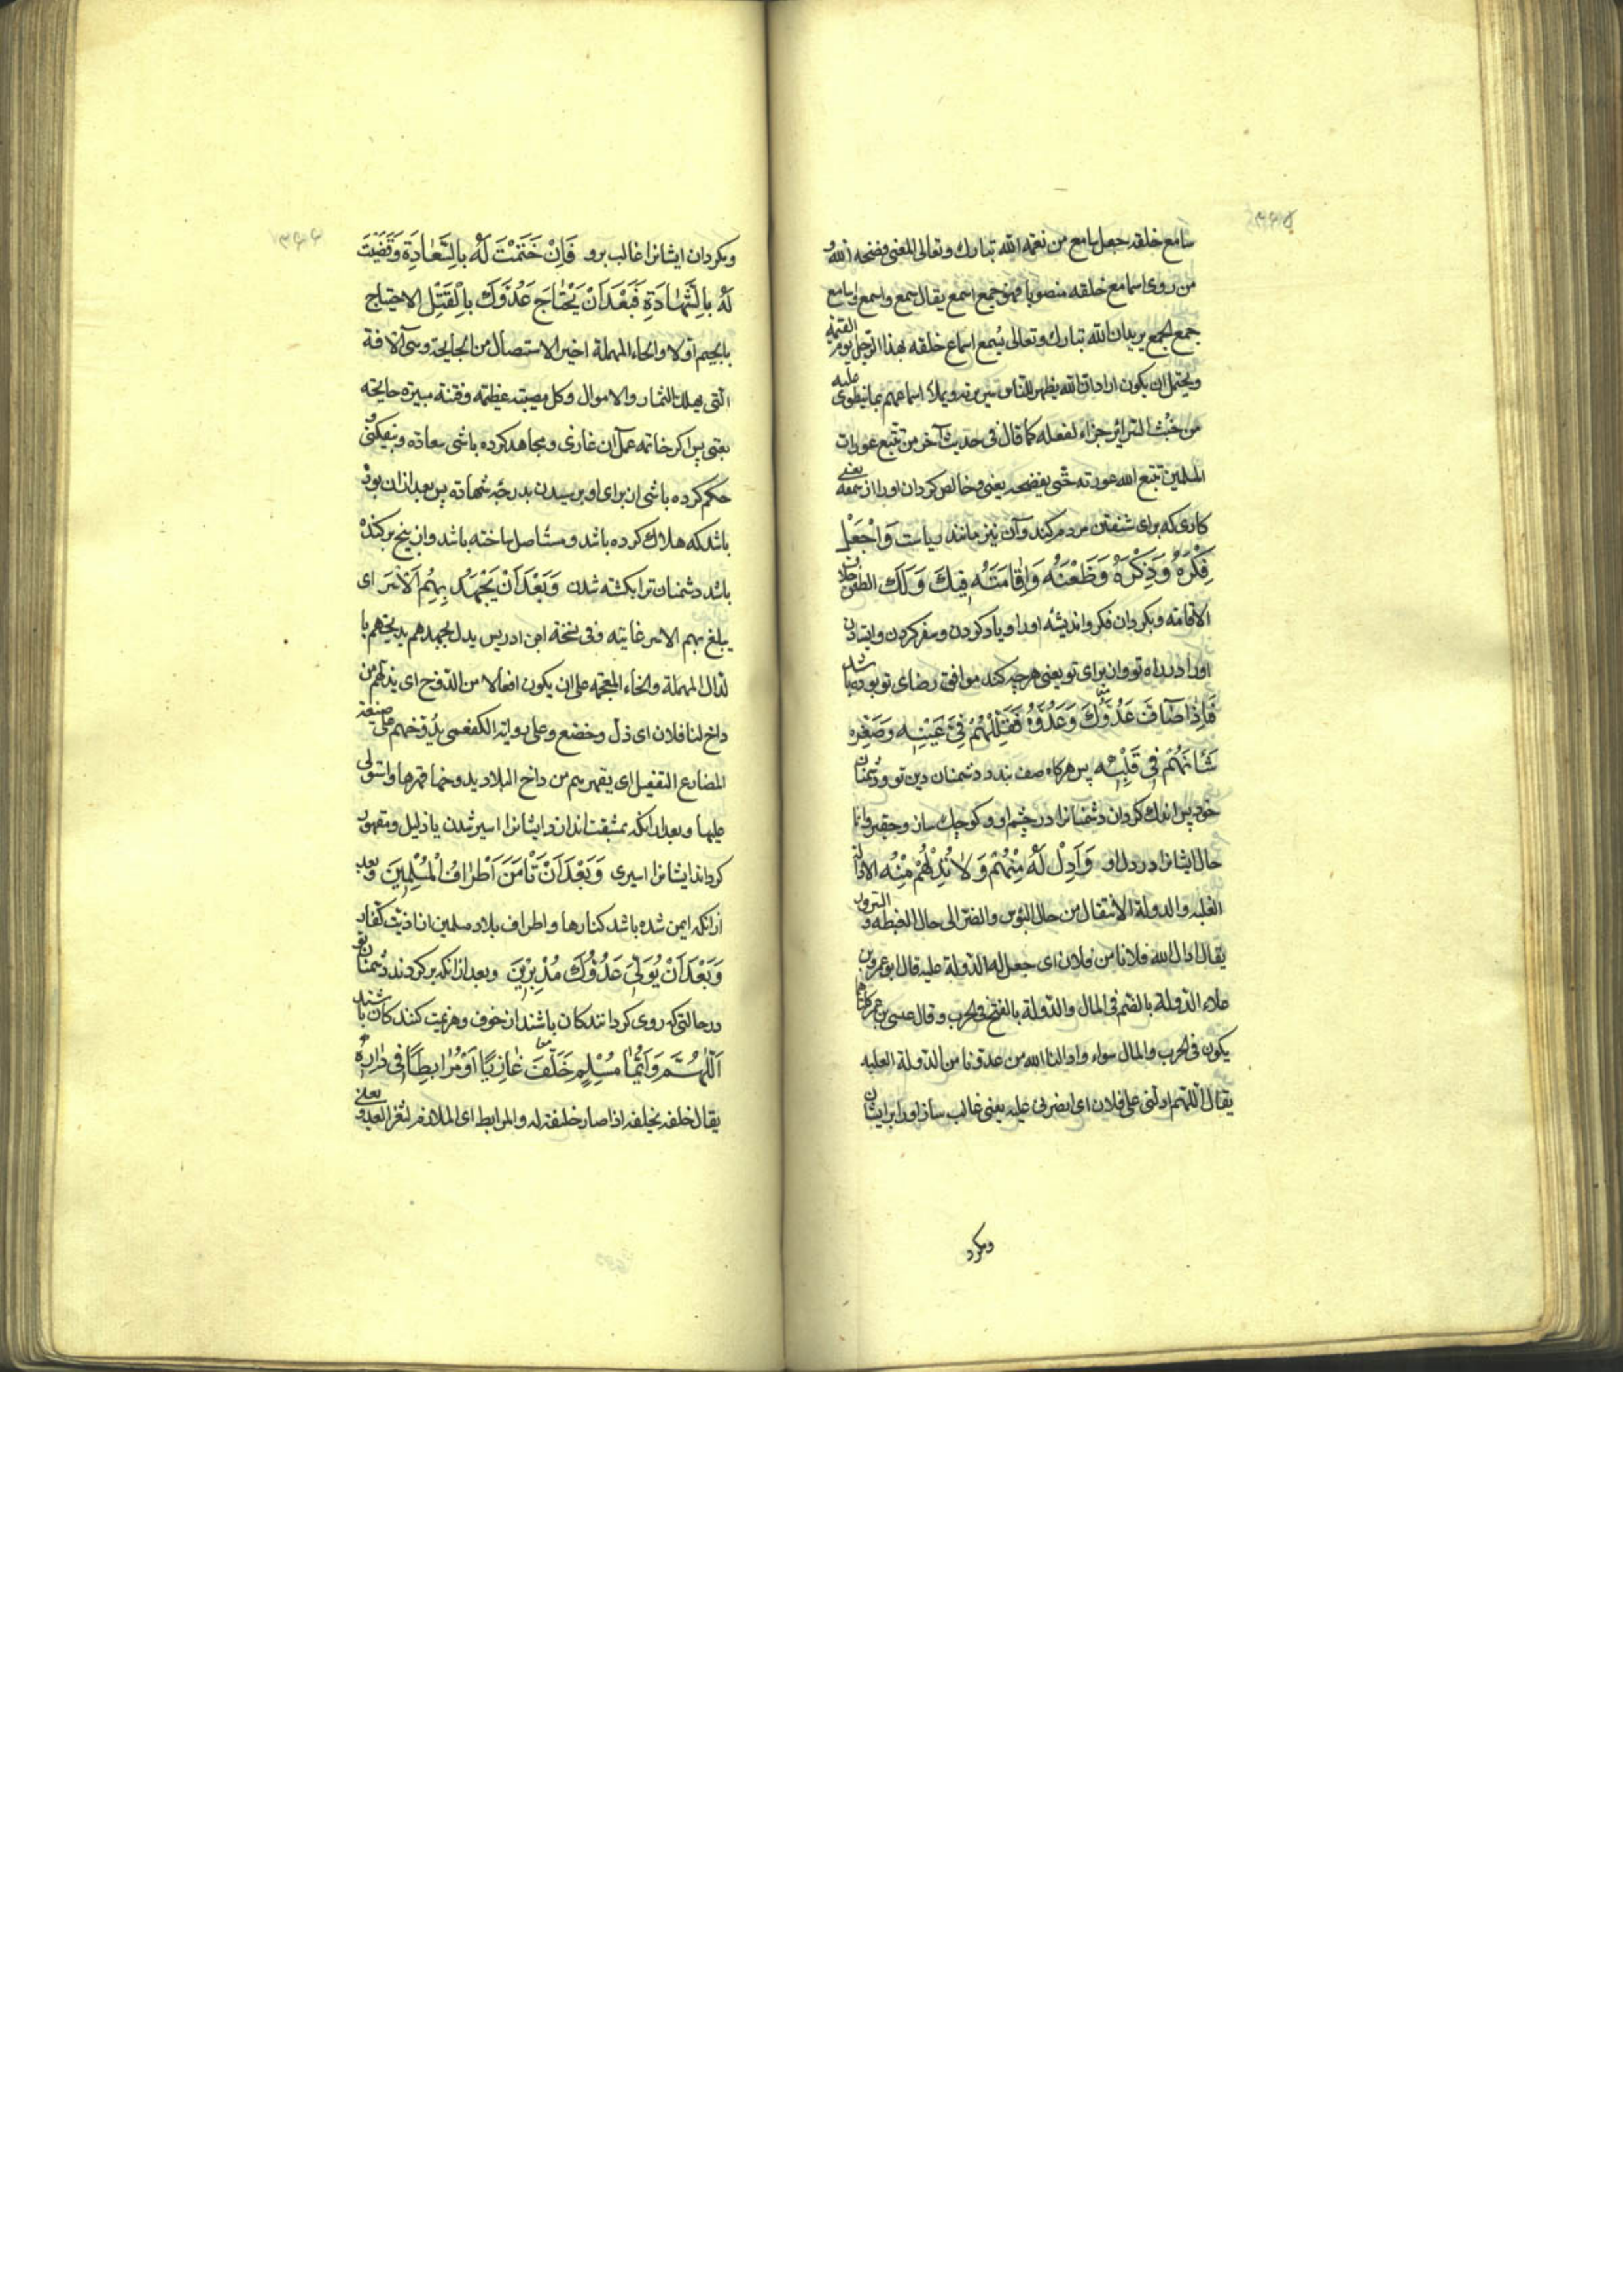 سامع خلقه جعل سامع من نعته الله تبارك وتعالى المعنى فضحه الله و
من روى اسامع خلقه منصوبا فهو جمع اسمع يقال سمع واسمع واسامع
جمع الجمع يريد ان الله تبارك وتعالى يُسمع اسماع خلقه بهذا الرجل يوم القيمة
ويحتمل ان يكون اراد ان الله يظهر للناس سريرته ويملأ اسماعهم بما ينطوى عليه
من خُبث السرائر جزاء لفعله كما قال فى حديث آخر من تتبع عورات
المسلمين تتبع الله عورته حتى يفضحه يعنى وخالص كردان اورا از سمعه يعنى
كارى كه براى شنفتن مردم كند وآن نيز مانند رياست وَاجْعَلْ
فِكْرَهُ وَذِكْرَهُ وَظَعْنَهُ وَاِقامَتَهُ فيكَ وَلَكَ الظعن خلاف
الاقامة وبكردان فكر وانديشه اورا وياد كردن وسفر كردن وايستادن
اورا در راه تو وازبراى تو يعنى هرچه كند موافق رضاى تو بوده باشد
فَاِذا صَآفَّ عَدُوَّكَ وَعَدُوَّهُ فَقَلِّلْهُمْ فى عَيْنِه وَصَغِّرْ
شَاْنَهُمْ فى قَلْبِه پس هركاه صف بندد دشمنان دين تو ودشمنان
خود پس اندك كردان دشمنانرا در چشم او وكوچك ساز وحقير نما
حال ايشانرا در دل او وَاَدِلْ لَهُ مِنْهُمْ وَلا تُدِلْهُمْ مِنْهُ الادالة
الغلبة والدولة الانتقال من حال البؤس والضر الى حال الغبطة والسرور
يقال ادال الله فلانا من فلان اى جعل له الدولة عليه قال ابو عمرو بن
علاء الدولة بالضم فى المال والدولة بالفتح فى الحرب وقال عيسى بن عمر كلتاهما
يكون فى الحرب والمال سواء وادالنا الله من عدونا من الدولة الغلبه
يقال اللّهم ادلنى على فلان اى انصرنى عليه يعنى غالب ساز اورا بر ايشان
وبكرد
وبكردان ايشانرا غالب برو فَاِنْ خَتَمْتَ لَهُ بِالسَّعادَةِ وَقَضَيْتَ
لَهُ بِالشَّهادَةِ فَبَعْدَ اَنْ يَجْتاحَ عَدُوَّكَ بِالْقَتْلِ الاجتياح
بالجيم اولا والحاء المهملة اخيرا الاستصال من الجايحة وهى الآفة
التى تهلك الثمار والاموال وكل مصيبته عظيمة وفتنة مبيرة جايحة
يعنى پس اكر خاتمه عمل آن غازى ومجاهد كرده باشى سعادة ونيكى و
حكم كرده باشى از براى او برسيدن بدرجهٔ شهادة پس بعد ازان بود
باشد كه هلاك كرده باشد ومستأصل ساخته باشد واز بيخ بركنده
باشد دشمنان ترا بكشته شدن وَبَعْدَ اَنْ يَجْهَدَ بِهِمُ الْاَسْرَ اى
يبلغ بهم الاسر غايته وفى نسخة ابن ادريس بدل يجهدهم يديخهم با
لدال المهملة والخاء المعجمه على ان يكون افعالا من الدوخ اى يذلّهم من
داخ لنا فلان اى ذل وخضع وعلى رواية الكفعمى يُدوّخهم على صيغة
المضارع التفعيل اى يقهرهم من داخ البلاد يدوخها قهرها واستولى
عليها وبعد از آنكه بمشقت اندازد ايشانرا اسير شدن يا ذليل ومقهور
كرداند ايشانرا اسيرى وَبَعْدَ اَنْ تَاْمَنَ اَطْرافُ الْمُسْلِمينَ وبعد
ازآنكه ايمن شده باشد كنارها واطراف بلاد مسلمين از اذيت كفار
وَبَعْدَ اَنْ يُوَلِّىَ عَدُوُّكَ مُدْبِرينَ وبعد ازآنكه بركردند دشمنان تو
درحالتى كه روى كردانندكان باشند از خوف وهزيمت كنندكان باشند
اَللّهُمَّ وَاَيُّما مُسْلِمٍ خَلَفَ غازِيًا اَوْ مُرابِطًا فى دارِه
يقال خلفه يخلفه اذا صار خليفة له والمرابط اى الملازم لثغر العدو يعنى